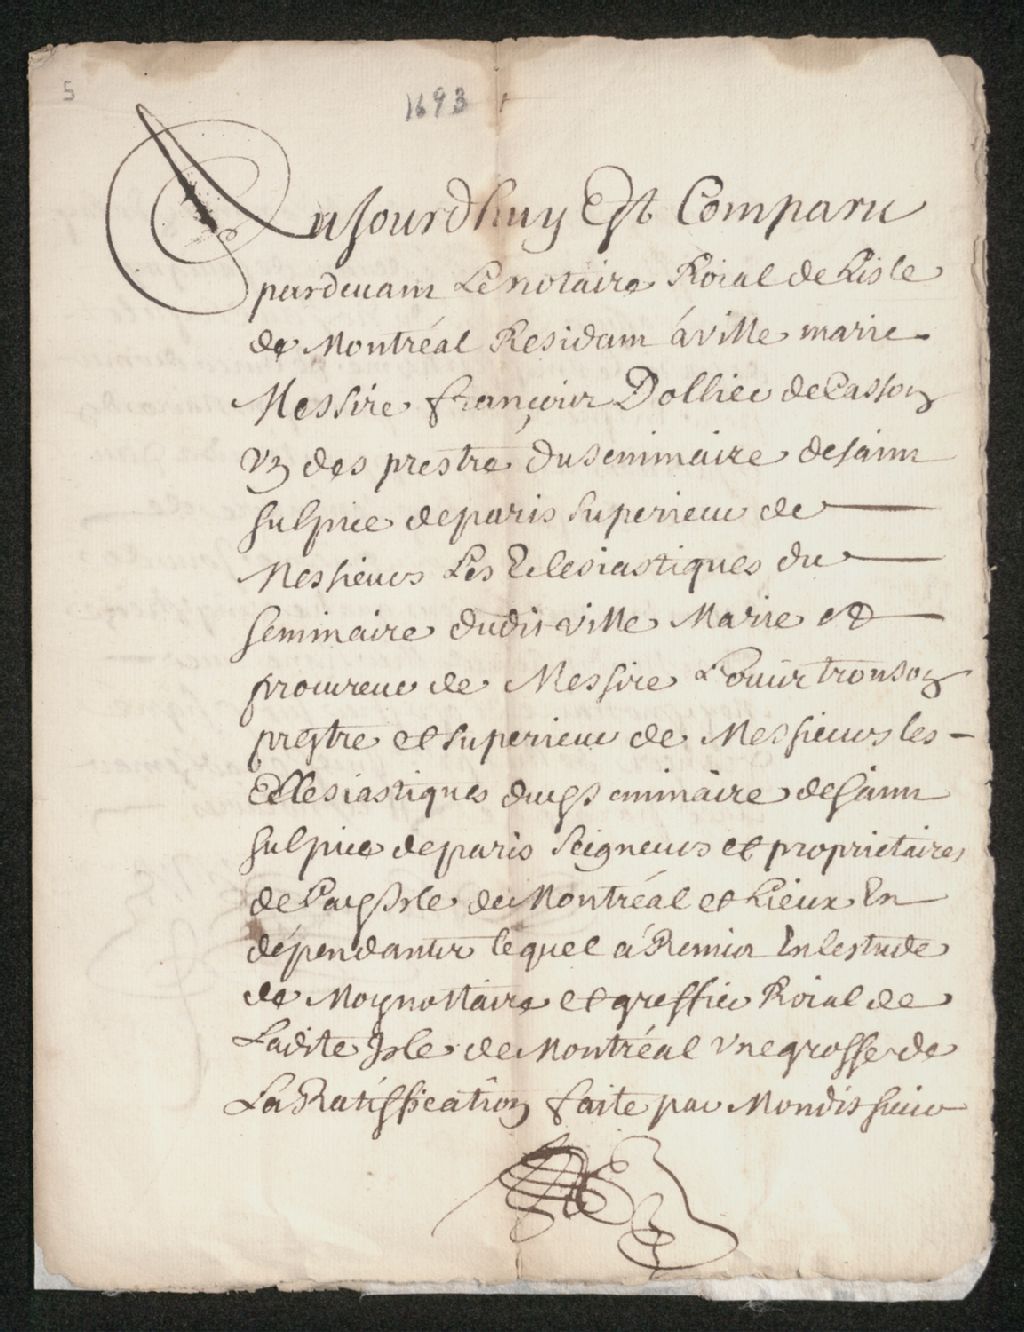 5
1693
Aujourdhuy Est Comparu
pardevant Le notaire Roial de Lisle
de Montréal Residant à ville marie
Messire françois Dollier de Casson
un des prestre du seminaire de saint
sulpice de paris superieur de
Messieurs Les Eclesiastiques du
seminaire dudit ville Marie et
procureur de Messire Louis tronson
prestre et superieur de Messieurs les
Ecclesiastiques dudit seminaire de saint
sulpice de paris seigneurs et proprietaires
de Ladite Isle de Montréal et Lieux En
dépendants lequel à Remis En lestude
de Moy nottaire et greffier Roial de
Ladite Isle de Montréal une grosse de
La Ratiffication faite par Mondit sieur